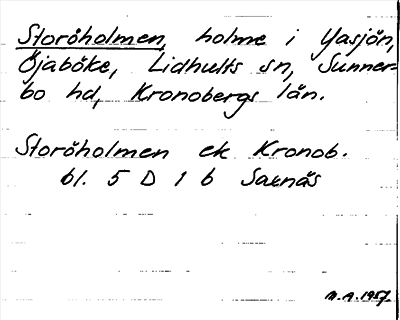 Storöholmen, holme i Yasjön,
Öjaböke, Lidhults sn, Sunner-
bo hd, Kronobergs län.
Storöholmen ek Kronob.
bl. 5 D 1 b Saxnäs
M.A. 1957